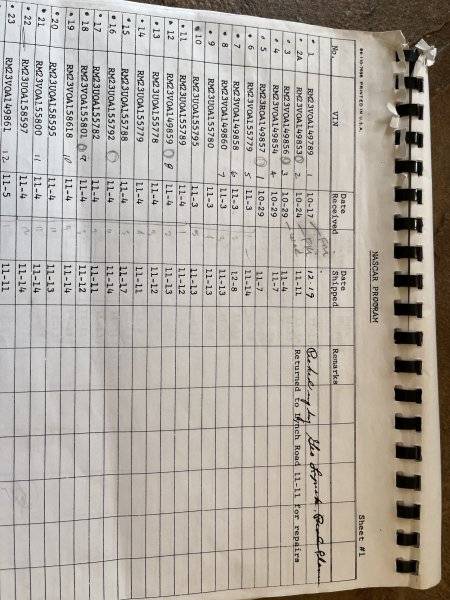 86-10-7698 PRINTED IN U.S.A.
NASCAR PROGRAM
Sheet #1
No. VIN Date Received Date Shipped Remarks
• 1 RM23VOA149789 1 10-17 12-19 Picked up by
• 2A RM23VOA149853 2 10-24 11-11 Returned to Lynch Road 11-11 for repairs
• 3 RM23VOA149856 3 10-29 11-4
• 4 RM23VOA149854 4 10-29 11-7
• 5 RM23ROA149857 1 10-29 11-7
• 6 RM23UOA155779 5 11-3 11-14
• 7 RM23VOA149858 6 11-3 12-8
• 8 RM23VOA149860 7 11-3 11-13
• 9 RM23UOA155780 11-3 11-13
• 10 RM23UOA155795 11-3
• 11 RM23UOA155789 11-4 11-12
• 12 RM23VOA149859 8 11-4 11-13
• 13 RM23UOA155778 11-4 11-12
• 14 RM23UOA155779 11-4 11-11
• 15 RM23UOA155788 11-4 11-17
• 16 RM23VOA155792 11-4 11-14
• 17 RM23UOA155782 11-4 11-11
• 18 RM23VOA155801 9 11-4 11-12
• 19 RM23VOA158618 10 11-4 11-14
• 20 RM23UOA158595 11-4 11-13
• 21 RM23VOA155800 11 11-4 11-14
• 22 RM23UOA158597 11-4 11-14
• 23 RM23VOA149861 12 11-5 11-11